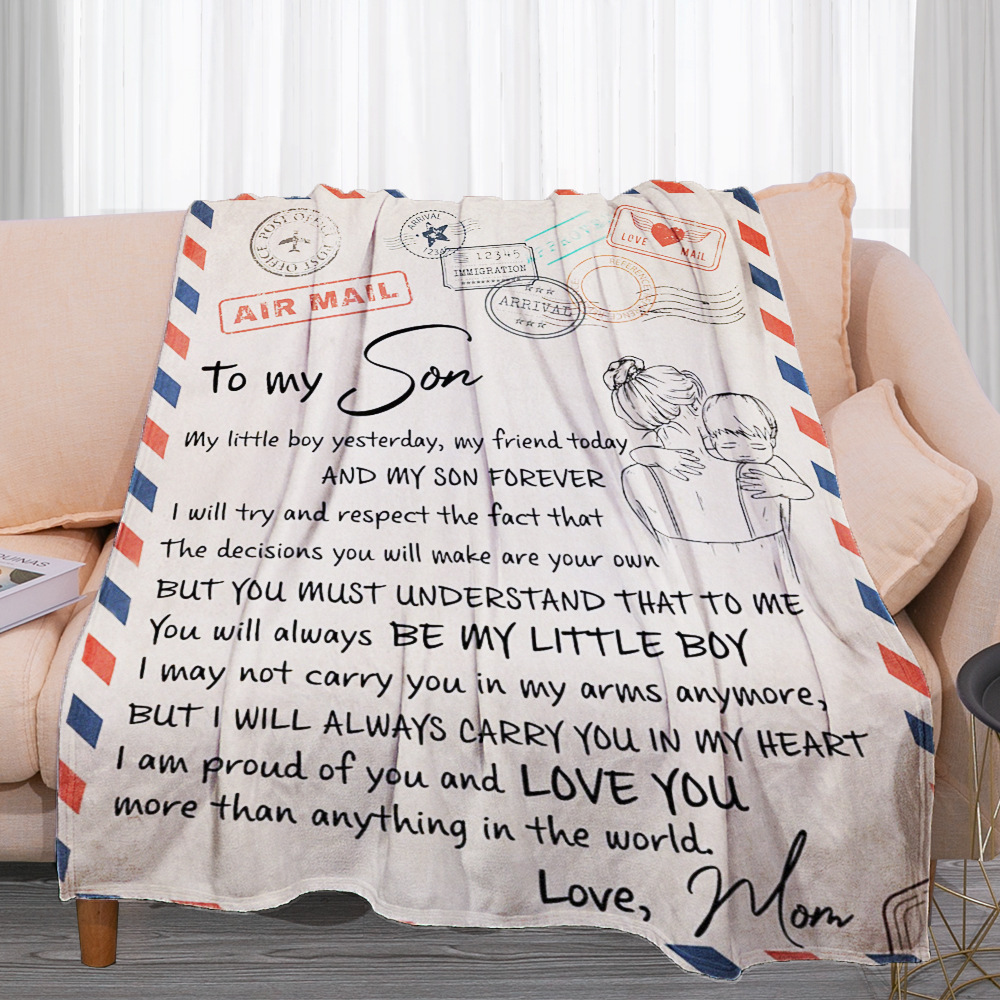 POST OFFICE POST OFFICE
ARRIVAL
12345
IMMIGRATION
LOVE MAIL
ARRIVAL
AIR MAIL
To my Son
My little boy yesterday, my friend today
AND MY SON FOREVER
I will try and respect the fact that
The decisions you will make are your own
BUT YOU MUST UNDERSTAND THAT TO ME
You will always BE MY LITTLE BOY
I may not carry you in my arms anymore,
BUT I WILL ALWAYS CARRY YOU IN MY HEART
I am proud of you and LOVE YOU
more than anything in the world.
Love, Mom